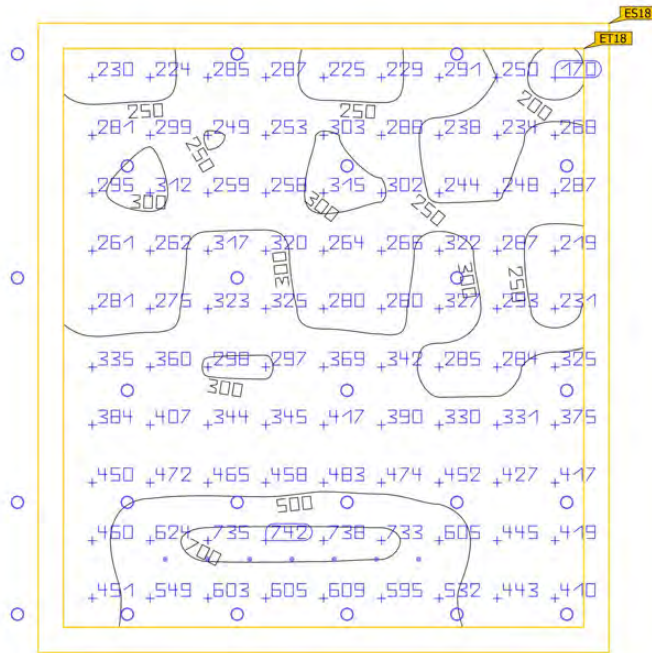 ES18
ET18
230 224 285 287 225 229 291 250 170
250 250 200
281 299 249 253 303 288 238 234 268
250
295 312 259 258 315 302 244 248 287
300 300 250
261 262 317 320 264 266 322 287 219
300 300 250
281 275 323 325 280 280 327 293 231
335 360 298 297 369 342 285 284 325
300
384 407 344 345 417 390 330 331 375
450 472 465 458 483 474 452 427 417
500
460 624 735 742 738 733 605 445 419
700
451 549 603 605 609 595 532 443 410